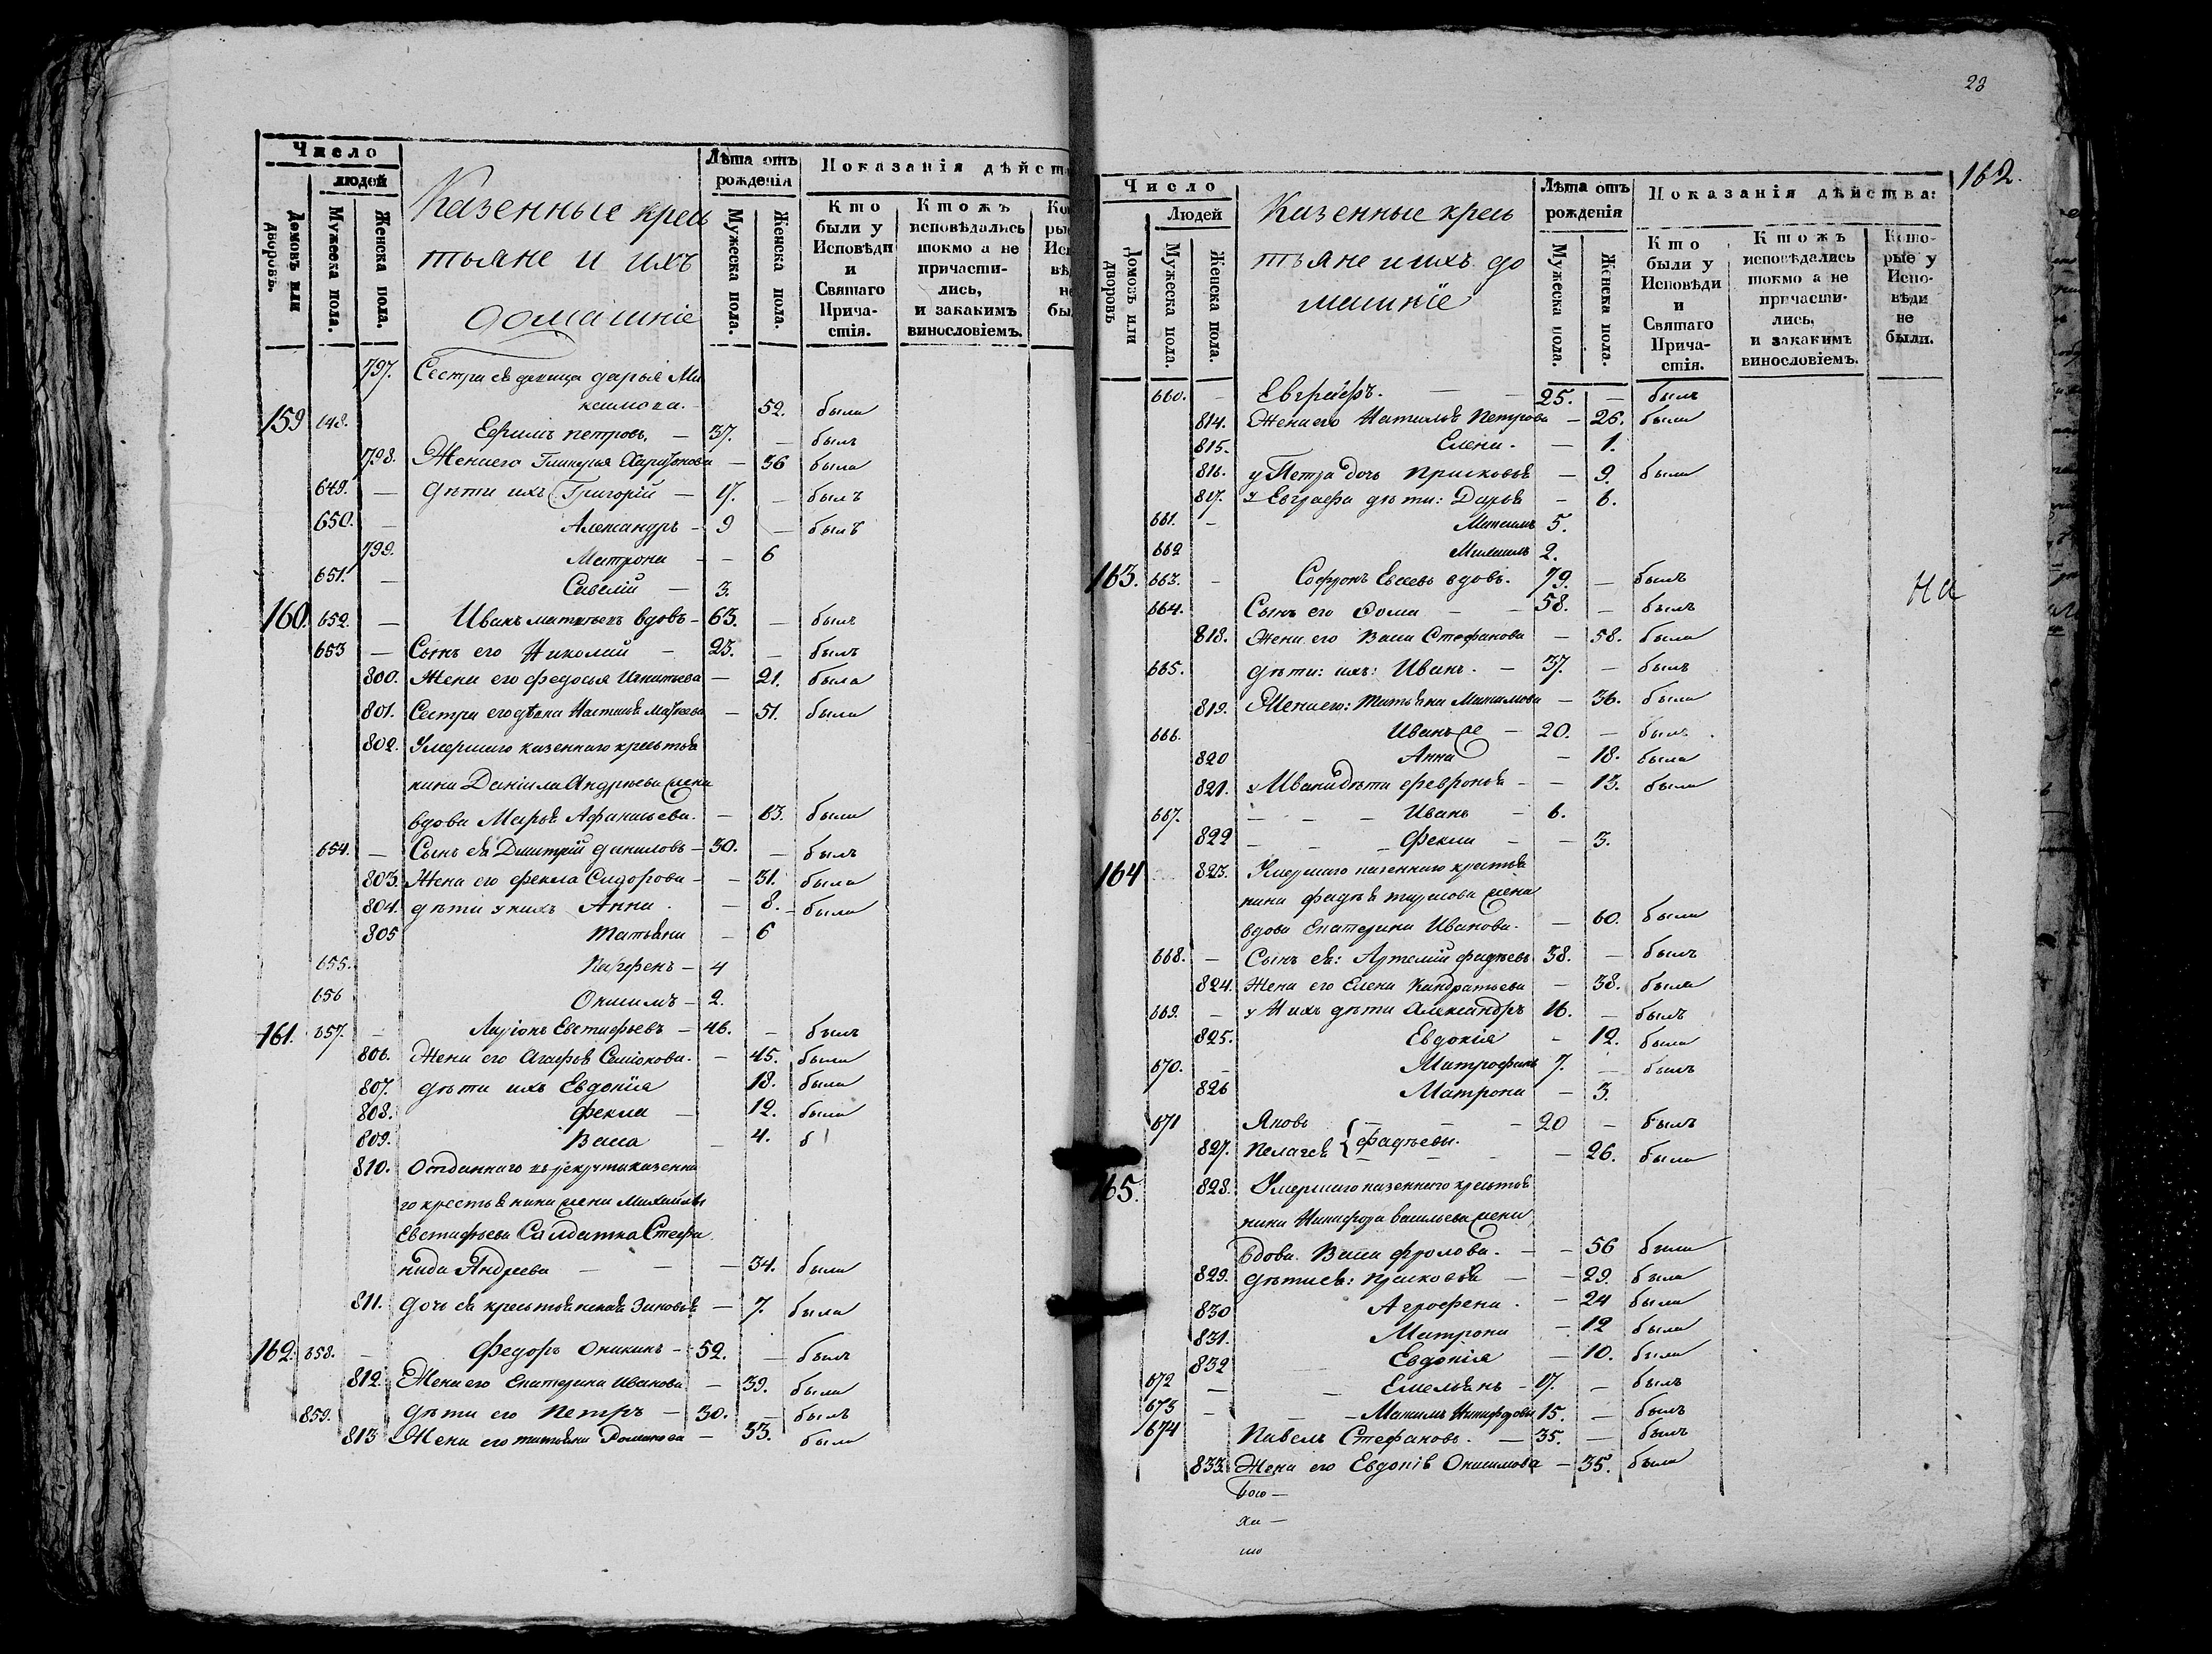 Число
людей
Домовъ или дворовъ.
Мужеска пола.
Женска пола.
Казенные кресь
тьяне и ихъ
домашніе
Лѣта отъ рожденія
Мужеска пола.
Женска пола.
Показанія дѣйст
Кто были у Исповѣди и Святаго Прича-стія.
Ктожъ исповѣдались токмо а не причасти-лись, и закакимъ винословіемъ.
797. Сестра ея девица дарья Ма
ксимова. 52. была
159 648. Ефимъ петровъ, – 37. – былъ
798. Жена его Гликерья Харитонова – 36 была
649. – дѣти ихъ Григорій – 17. – былъ
650. – Александръ – 9 – былъ
799. Матрона – – 6
651. – Савелій – 3.
160. 652. – Иванъ матвѣевъ вдовъ – 63. – былъ
653 – Сынъ его Николай – 23. – былъ
800. Жена его федосья Игнатьева – 21. была
801. Сестра его дѣвка Настасья Матвеева – 51. была
802. Умершаго казеннаго крестья
нина Даніила Андреева жена
вдова Марья Афанасьева. – 63. была
654. – Сынъ ея Дмитрій даниловъ – 30. – былъ
803. Жена его фекла Сидорова – – 31. была
804. дѣти у нихъ Анна. – 8. – была
805 татьяна – 6
655. Парфенъ – 4
656 Онисимъ – 2.
161. 657. – Ларіонъ Евстифьевъ – 46. – былъ
806. Жена его Агафья Самсонова. – 45. была
807. дѣти ихъ Евдокіа 18. была
808. фекла – 12. была
809. Васса – 4. б
810. Отданнаго въ рекруты казенна
го крестьянина жена Михайлы
Евстифьева Салдатка Стефа
нида Андреева – – – 34. была
811. дочь ея крестьянская Зиновья – 7. была
162. 658. – Федоръ Оникинъ – 52. – былъ
812. Жена его Екатерина Иванова – 39. была
659. дѣти его Петръ – 30. – былъ
813 Жена его татьяна Романова – 33. была
28
162.
Число
Людей
Домовъ или дворовъ
Мужеска пола.
Женска пола.
Казенные кресь
тьяне и ихъ до
машніе
Лѣта отъ рожденія
Мужеска пола.
Женска пола.
Показанія дѣйства:
Кто были у Исповѣди и Святаго Прича-стія.
Ктожъ исповѣдались токмо а не причасти-лись, и закакимъ винословіемъ.
Кото-рые у Испо-вѣди не были.
660. – Евграфъ. – – 25. – былъ
814. Жена его Наталья Петрова – 26. была
815. Елена. – 1.
816. у Петра дочь прасковья – 9. была
817. у Евграфа дѣти: Дарья – 6.
661. – Максимъ 5.
662 Михаилъ 2.
163. 663. – Софронъ Евсеевъ вдовъ. 79. – былъ
На
664. Сынъ его Фома – – 58. – былъ
818. Жена его Васса Стефанова – 58. была
665. дѣти: ихъ: Иванъ. – 37. – былъ
819. Жена его: татьяна Максимова – 36. была
666. Иванъ же – 20. – былъ.
820 Анна – 18. была
821. у Ивана дѣти февронья – – 13. была
667. – – – Иванъ – 6.
822 – – – Фекла – – 3.
164 823. Умершаго казеннаго крестья
нина фадѣя тарасова жена
вдова Екатерина Иванова. – 60. была
668. – Сынъ ея: Артемій фадѣевъ 38. – былъ
824. Жена его Елена Кандратьева – 38. была
669. – у нихъ дѣти александръ 16. – былъ
825. Евдокіа – 12. была
670. – Митрофанъ 7. – былъ
826 Матрона – 3.
671 Яковъ – – – 20 – былъ
827. Пелагея { фадѣевы. – 26. была
165. 828. Умершаго казеннаго крестья
нина Никифора васильева жена
вдова. Васса фролова. – – 56 была
829. дѣти ея: прасковья – – 29. была
830 Агрофена. – 24 была
831. Матрона – 12 была
832 Евдокіа – 10. была
672 – – Емельянъ – 17. – былъ
673 – – – Максимъ Никифоровы 15. – былъ
674 Павелъ Стефановъ. – 35. – былъ
833. Жена его Евдокія Онисимова – 35. была